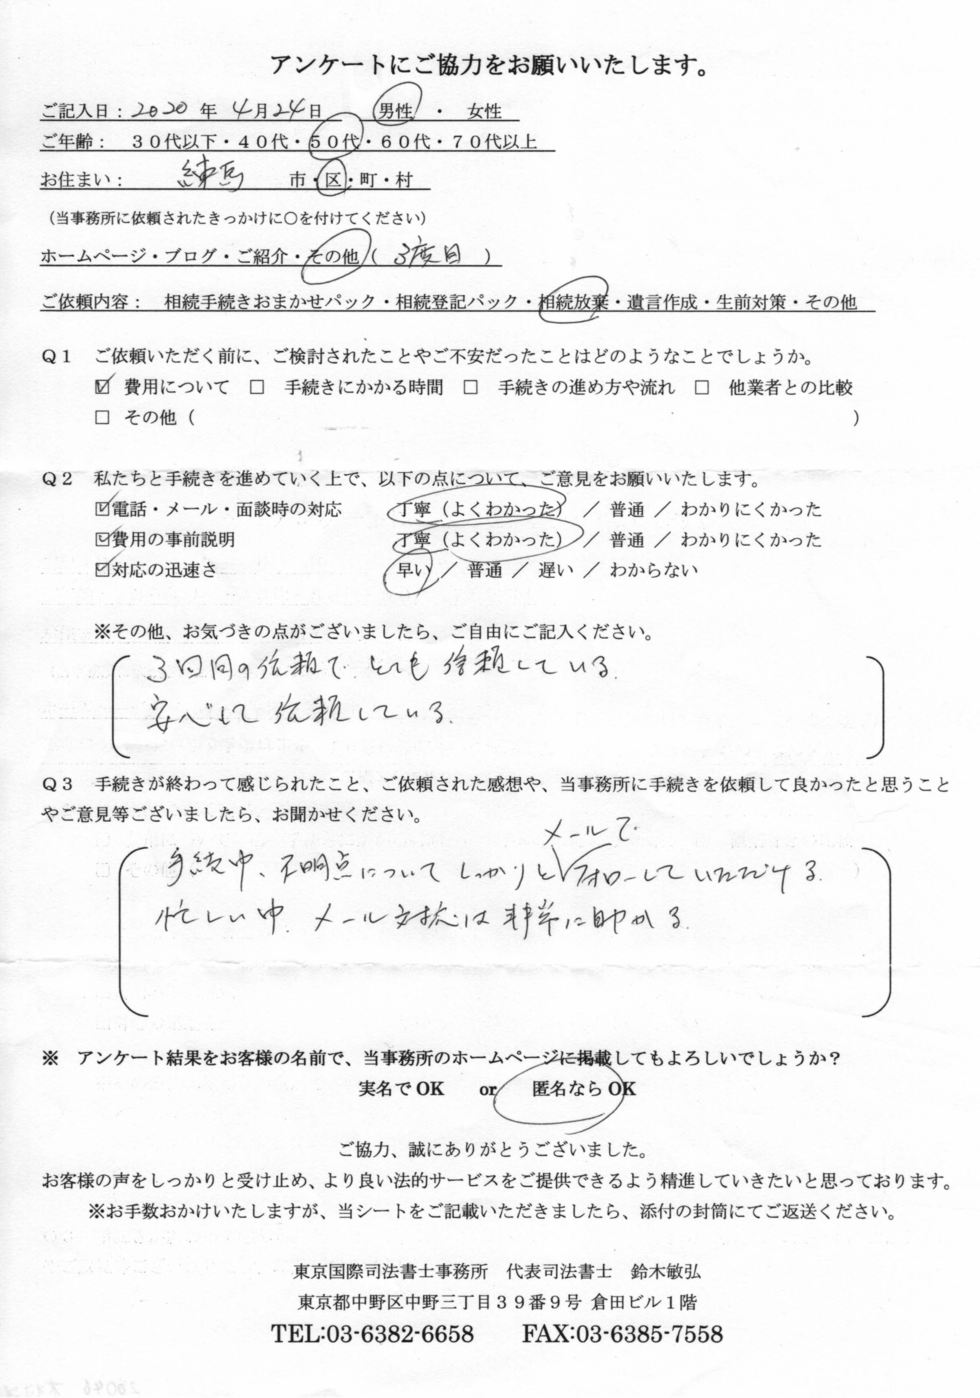 アンケートにご協力をお願いいたします。
ご記入日：2020 年 4月24日 男性 ・ 女性
ご年齢： ３０代以下・４０代・５０代・６０代・７０代以上
お住まい： 練馬 市・区・町・村
（当事務所に依頼されたきっかけに○を付けてください）
ホームページ・ブログ・ご紹介・その他（ 3度目 ）
ご依頼内容： 相続手続きおまかせパック・相続登記パック・相続放棄・遺言作成・生前対策・その他
Ｑ１ ご依頼いただく前に、ご検討されたことやご不安だったことはどのようなことでしょうか。
☑ 費用について □ 手続きにかかる時間 □ 手続きの進め方や流れ □ 他業者との比較
□ その他（ ）
Ｑ２ 私たちと手続きを進めていく上で、以下の点について、ご意見をお願いいたします。
☑電話・メール・面談時の対応 丁寧（よくわかった）／ 普通 ／ わかりにくかった
☑費用の事前説明 丁寧（よくわかった）／ 普通 ／ わかりにくかった
☑対応の迅速さ 早い ／ 普通 ／ 遅い ／ わからない
※その他、お気づきの点がございましたら、ご自由にご記入ください。
3回目の依頼で、とても信頼している。
安心して依頼している。
Ｑ３ 手続きが終わって感じられたこと、ご依頼された感想や、当事務所に手続きを依頼して良かったと思うこと
やご意見等ございましたら、お聞かせください。
メールで
手続中、不明点についてしっかりとフォローしていただける。
忙しい中、メール対応は非常に助かる。
※ アンケート結果をお客様の名前で、当事務所のホームページに掲載してもよろしいでしょうか？
実名でOK or 匿名ならOK
ご協力、誠にありがとうございました。
お客様の声をしっかりと受け止め、より良い法的サービスをご提供できるよう精進していきたいと思っております。
※お手数おかけいたしますが、当シートをご記載いただきましたら、添付の封筒にてご返送ください。
東京国際司法書士事務所 代表司法書士 鈴木敏弘
東京都中野区中野三丁目３９番９号 倉田ビル１階
TEL:03-6382-6658 FAX:03-6385-7558